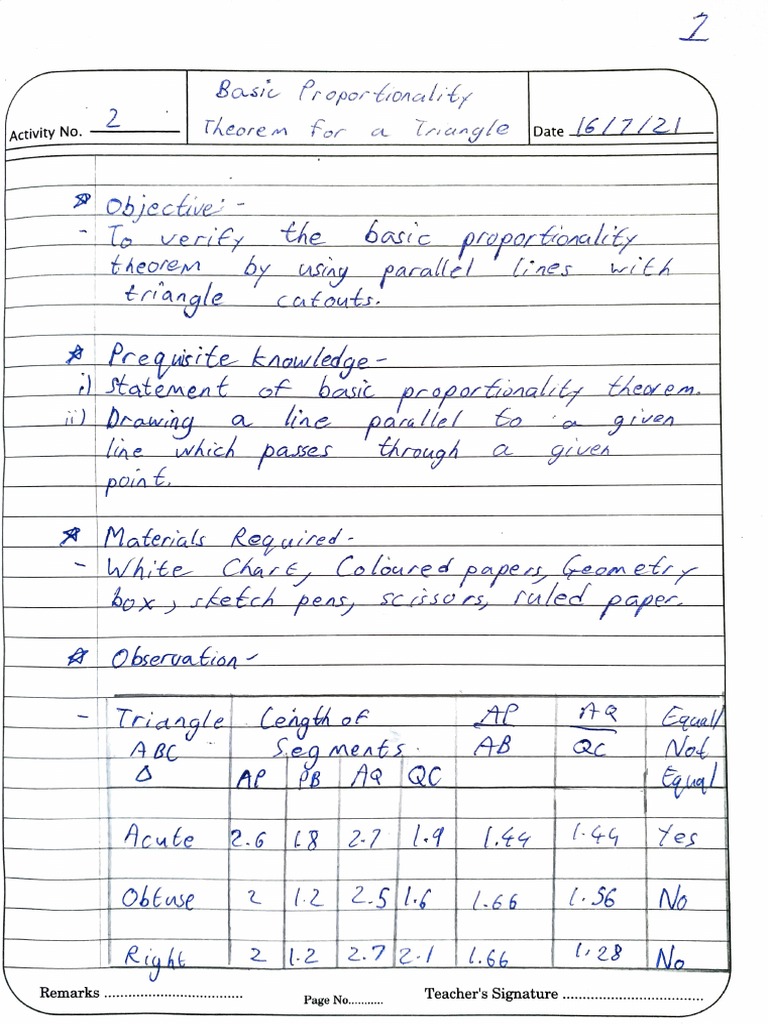 1
Basic Proportionality
Activity No. 2 Theorem for a Triangle Date 16/7/21
* Objective:-
- To verify the basic proportionality
theorem by using parallel lines with
triangle cutouts.
* Prequisite knowledge-
i) statement of basic proportionality theorem.
ii) Drawing a line parallel to a given
line which passes through a given
point.
* Materials Required-
- White Chart, Coloured papers, Geometry
box, sketch pens, scissors, ruled paper.
* Observation-
- Triangle Length of AP AQ Equal/
ABC Segments. AB QC Not
Δ AP PB AQ QC Equal
Acute 2.6 1.8 2.7 1.9 1.44 1.44 Yes
Obtuse 2 1.2 2.5 1.6 1.66 1.56 No
Right 2 1.2 2.7 2.1 1.66 1.28 No
Remarks .................................. Page No........... Teacher's Signature ..................................